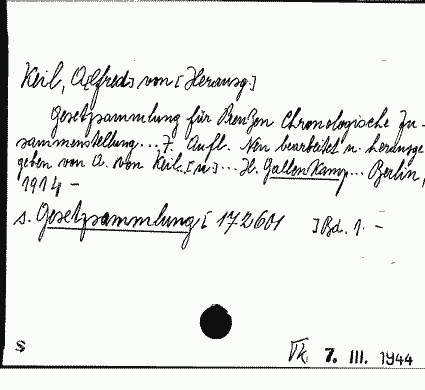 Keil, A[lfred] von [Herausg.]
Gesetzsammlung für Preußen Chronologische Zu-
sammenstellung... 7. Aufl. Neu bearbeitet u. herausge
geben von A. von Keil. [u] ... H. Gallenkamp... Berlin,
1914 -
s. Gesetzsammlung [ 172601 ] Bd. 1. -
S
7. III. 1944